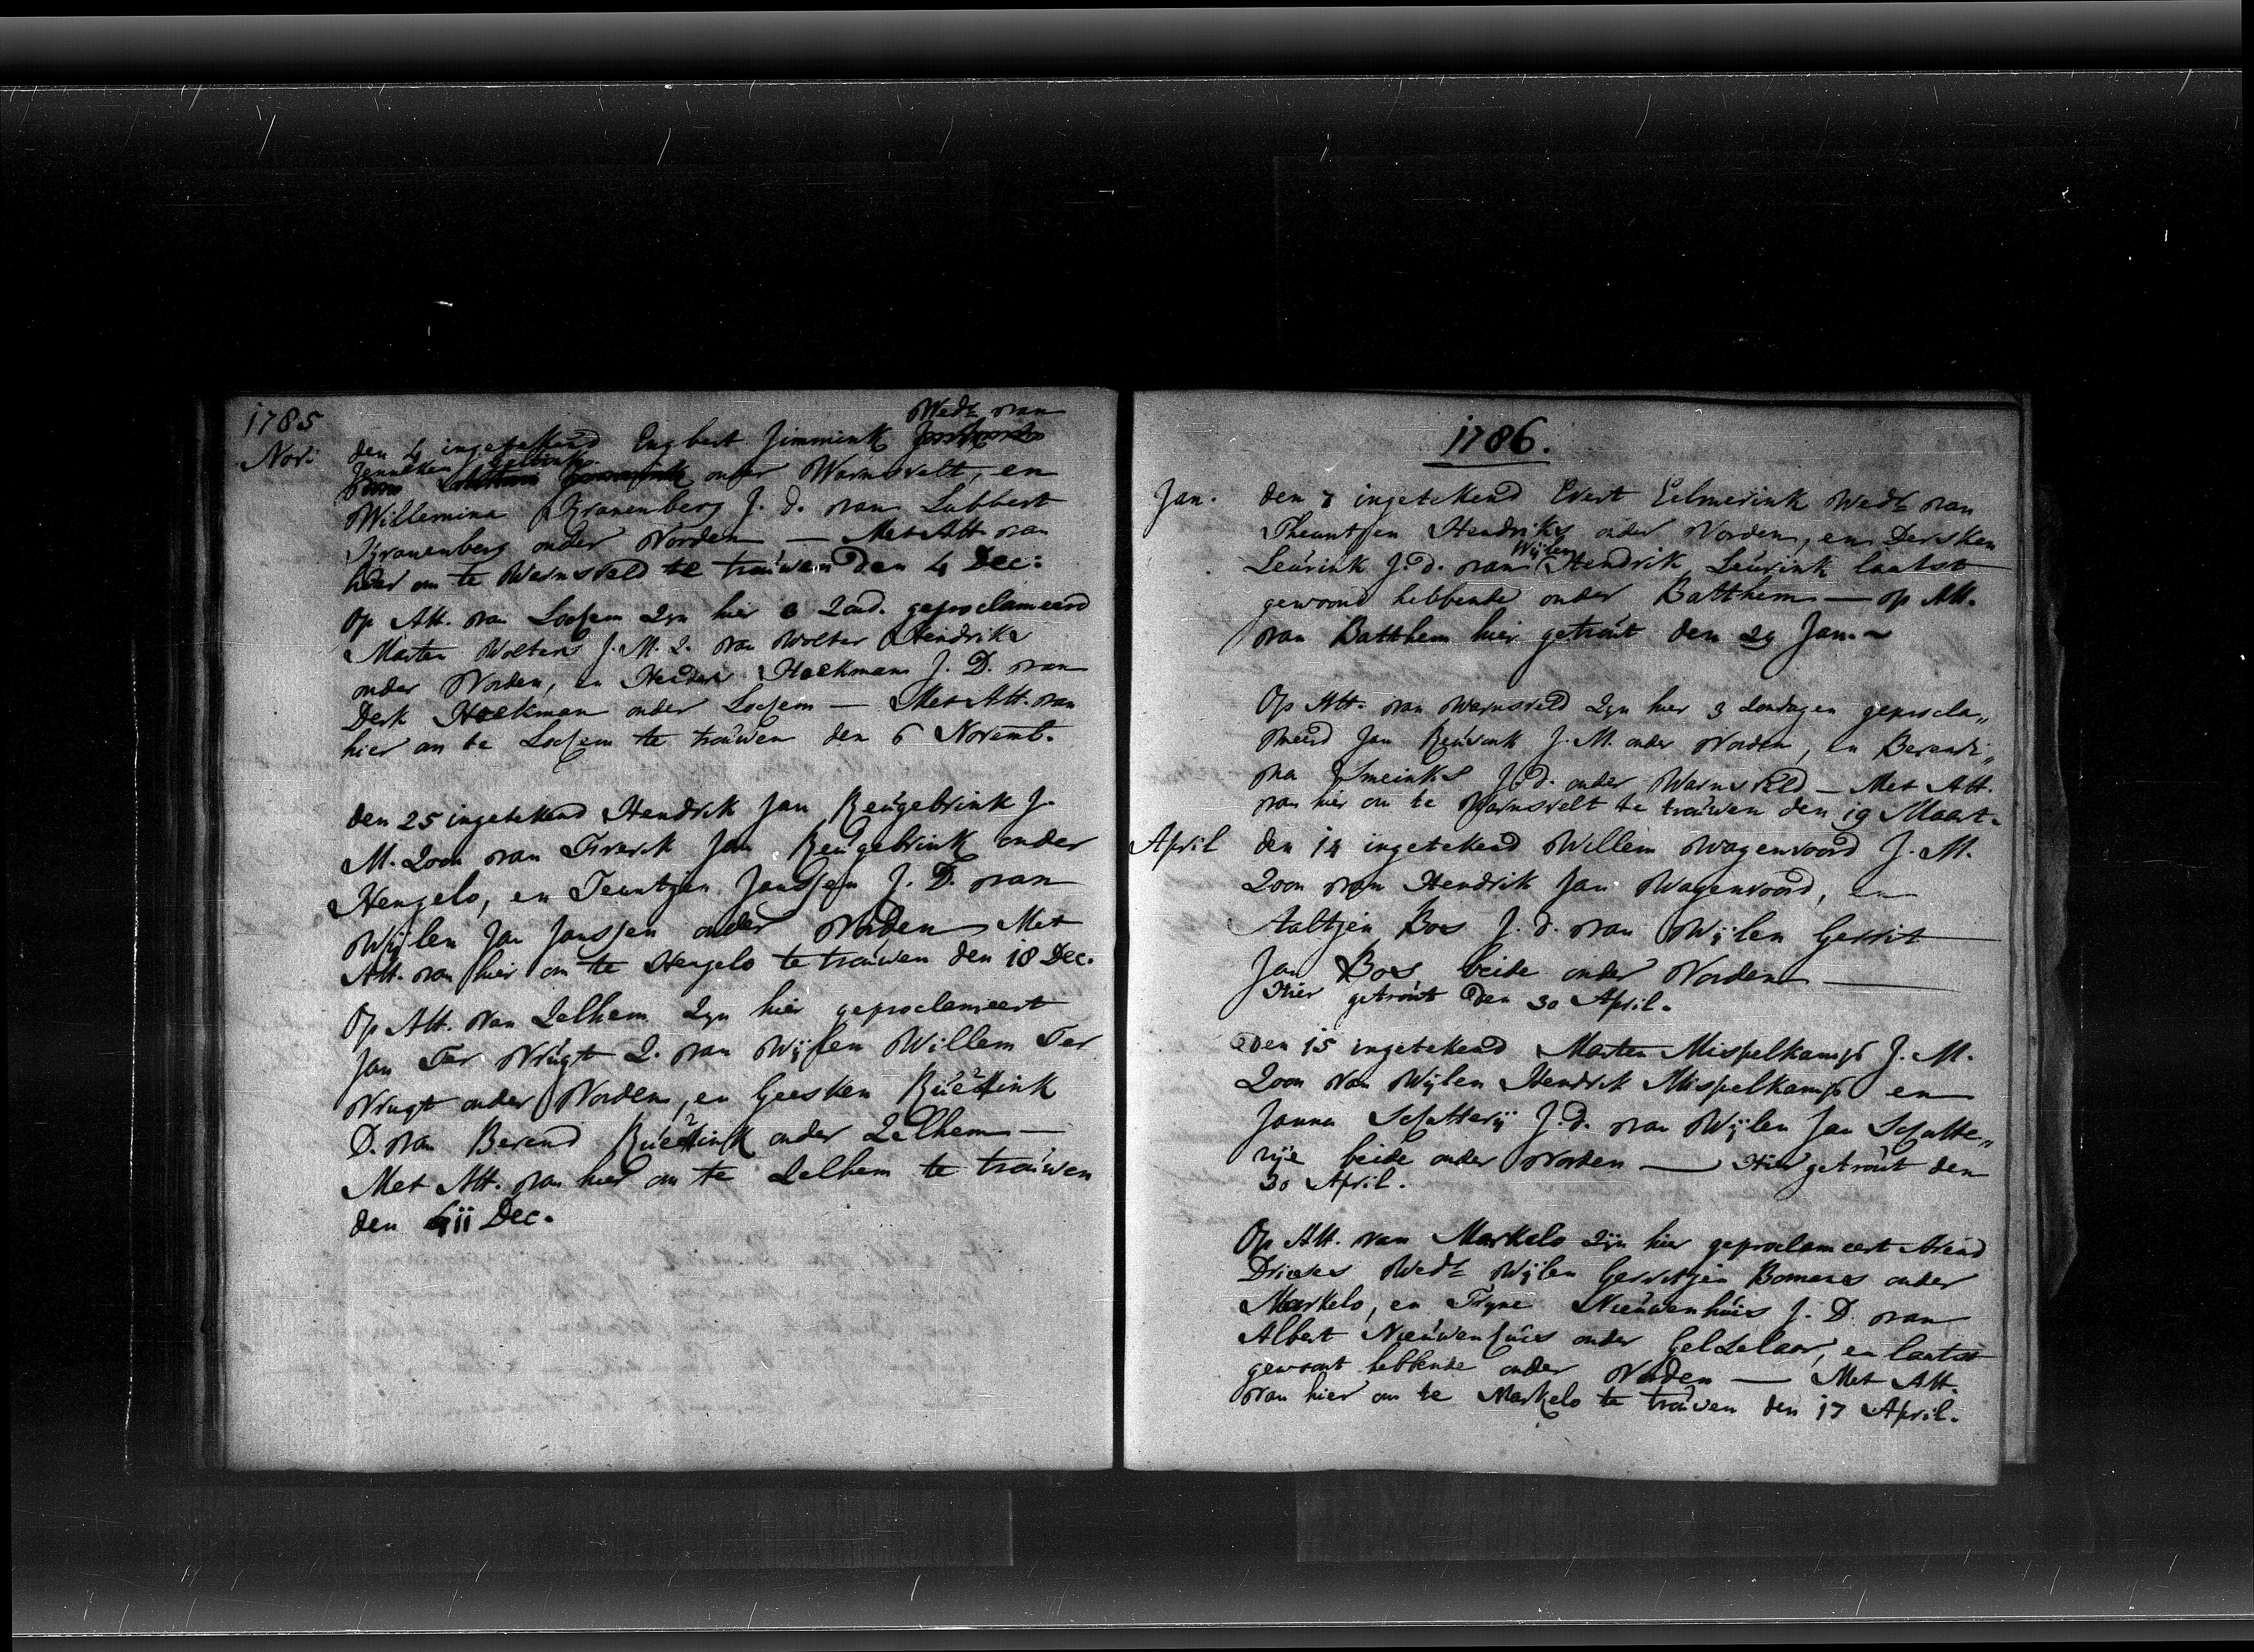 1785
Wedr van
Nov: den 4 ingetekend Engbert Jimmink
Jenneken onder Warnsvelt, en
Willemina Kranenberg J. d. van Lubbert
Kranenberg onder Vorden — Met Att. van
hier om te Warnsveld te trouwen den 4 Dec:
Op Att. van Lochem Zyn hier 3 Zond. geproclameerd
Marten Wolters J. M. Z. van Wolter Hendriks
onder Vorden, en Hoekman J. D. van
Derk Hoekman onder Lochem — Met Att. van
hier om te Lochem te trouwen den 6 Novemb.
den 25 ingetekend Hendrik Jan Reugebrink J.
M. Zoon van Frerik Jan Reugebrink onder
Hengelo, en Teuntjen Janssen J. D. van
Wijlen Jan Janssen onder Vorden Met
Att. van hier om te Hengelo te trouwen den 18 Dec.
Op Att. van Zelhem Zyn hier geproclameert
Jan Ter Vrugt Z. van Wijlen Willem Ter
Vrugt onder Vorden, en Geesken
D. van Berend onder Zelhem —
Met Att. van hier om te Zelhem te trouwen
den 11 Dec.
1786.
Jan. den 7 ingetekend Evert Eelmerink Wedr van
Theuntjen Hendriks onder Vorden, en Dersken
Wijlen
Leurink J. d. van Hendrik Leurink laatst
gewoont hebbende onder Batthem — op Att.
van Batthem hier getrout den 29 Jan.
Op Att. van Warnsveld Zyn hier 3 Zondagen geprocla„
meerd Jan Reurink J. M. onder Vorden, en Berendi„
na Smeinks J. d. onder Warnsveld — Met Att.
van hier om te Warnsvelt te trouwen den 19 Maart.
April den 14 ingetekend Willem Wagenvoord J. M.
Zoon van Hendrik Jan Wagenvoord, en
Aaltjen Bos J. d. van Wijlen Gerrit
Jan Bos beide onder Vorden —
Hier getrout den 30 April.
Den 15 ingetekend Marten Mispelkamp J. M.
Zoon van Wijlen Hendrik Mispelkamp en
Janna Schatterij J. d. van Wijlen Jan Schatte„
rije beide onder Vorden — Hier getrout den
30 April.
Op Att. van Markelo Zijn hier geproclameert Arend
Drieses Wedr Wijlen Gerritjen Bomers onder
Markelo, en Tryne Nieuwenhuis J. D. van
Albert Nieuwenhuis onder Gelzelaar, en laatst
gewoont hebbende onder Vorden — Met Att.
van hier om te Markelo te trouwen den 17 April.